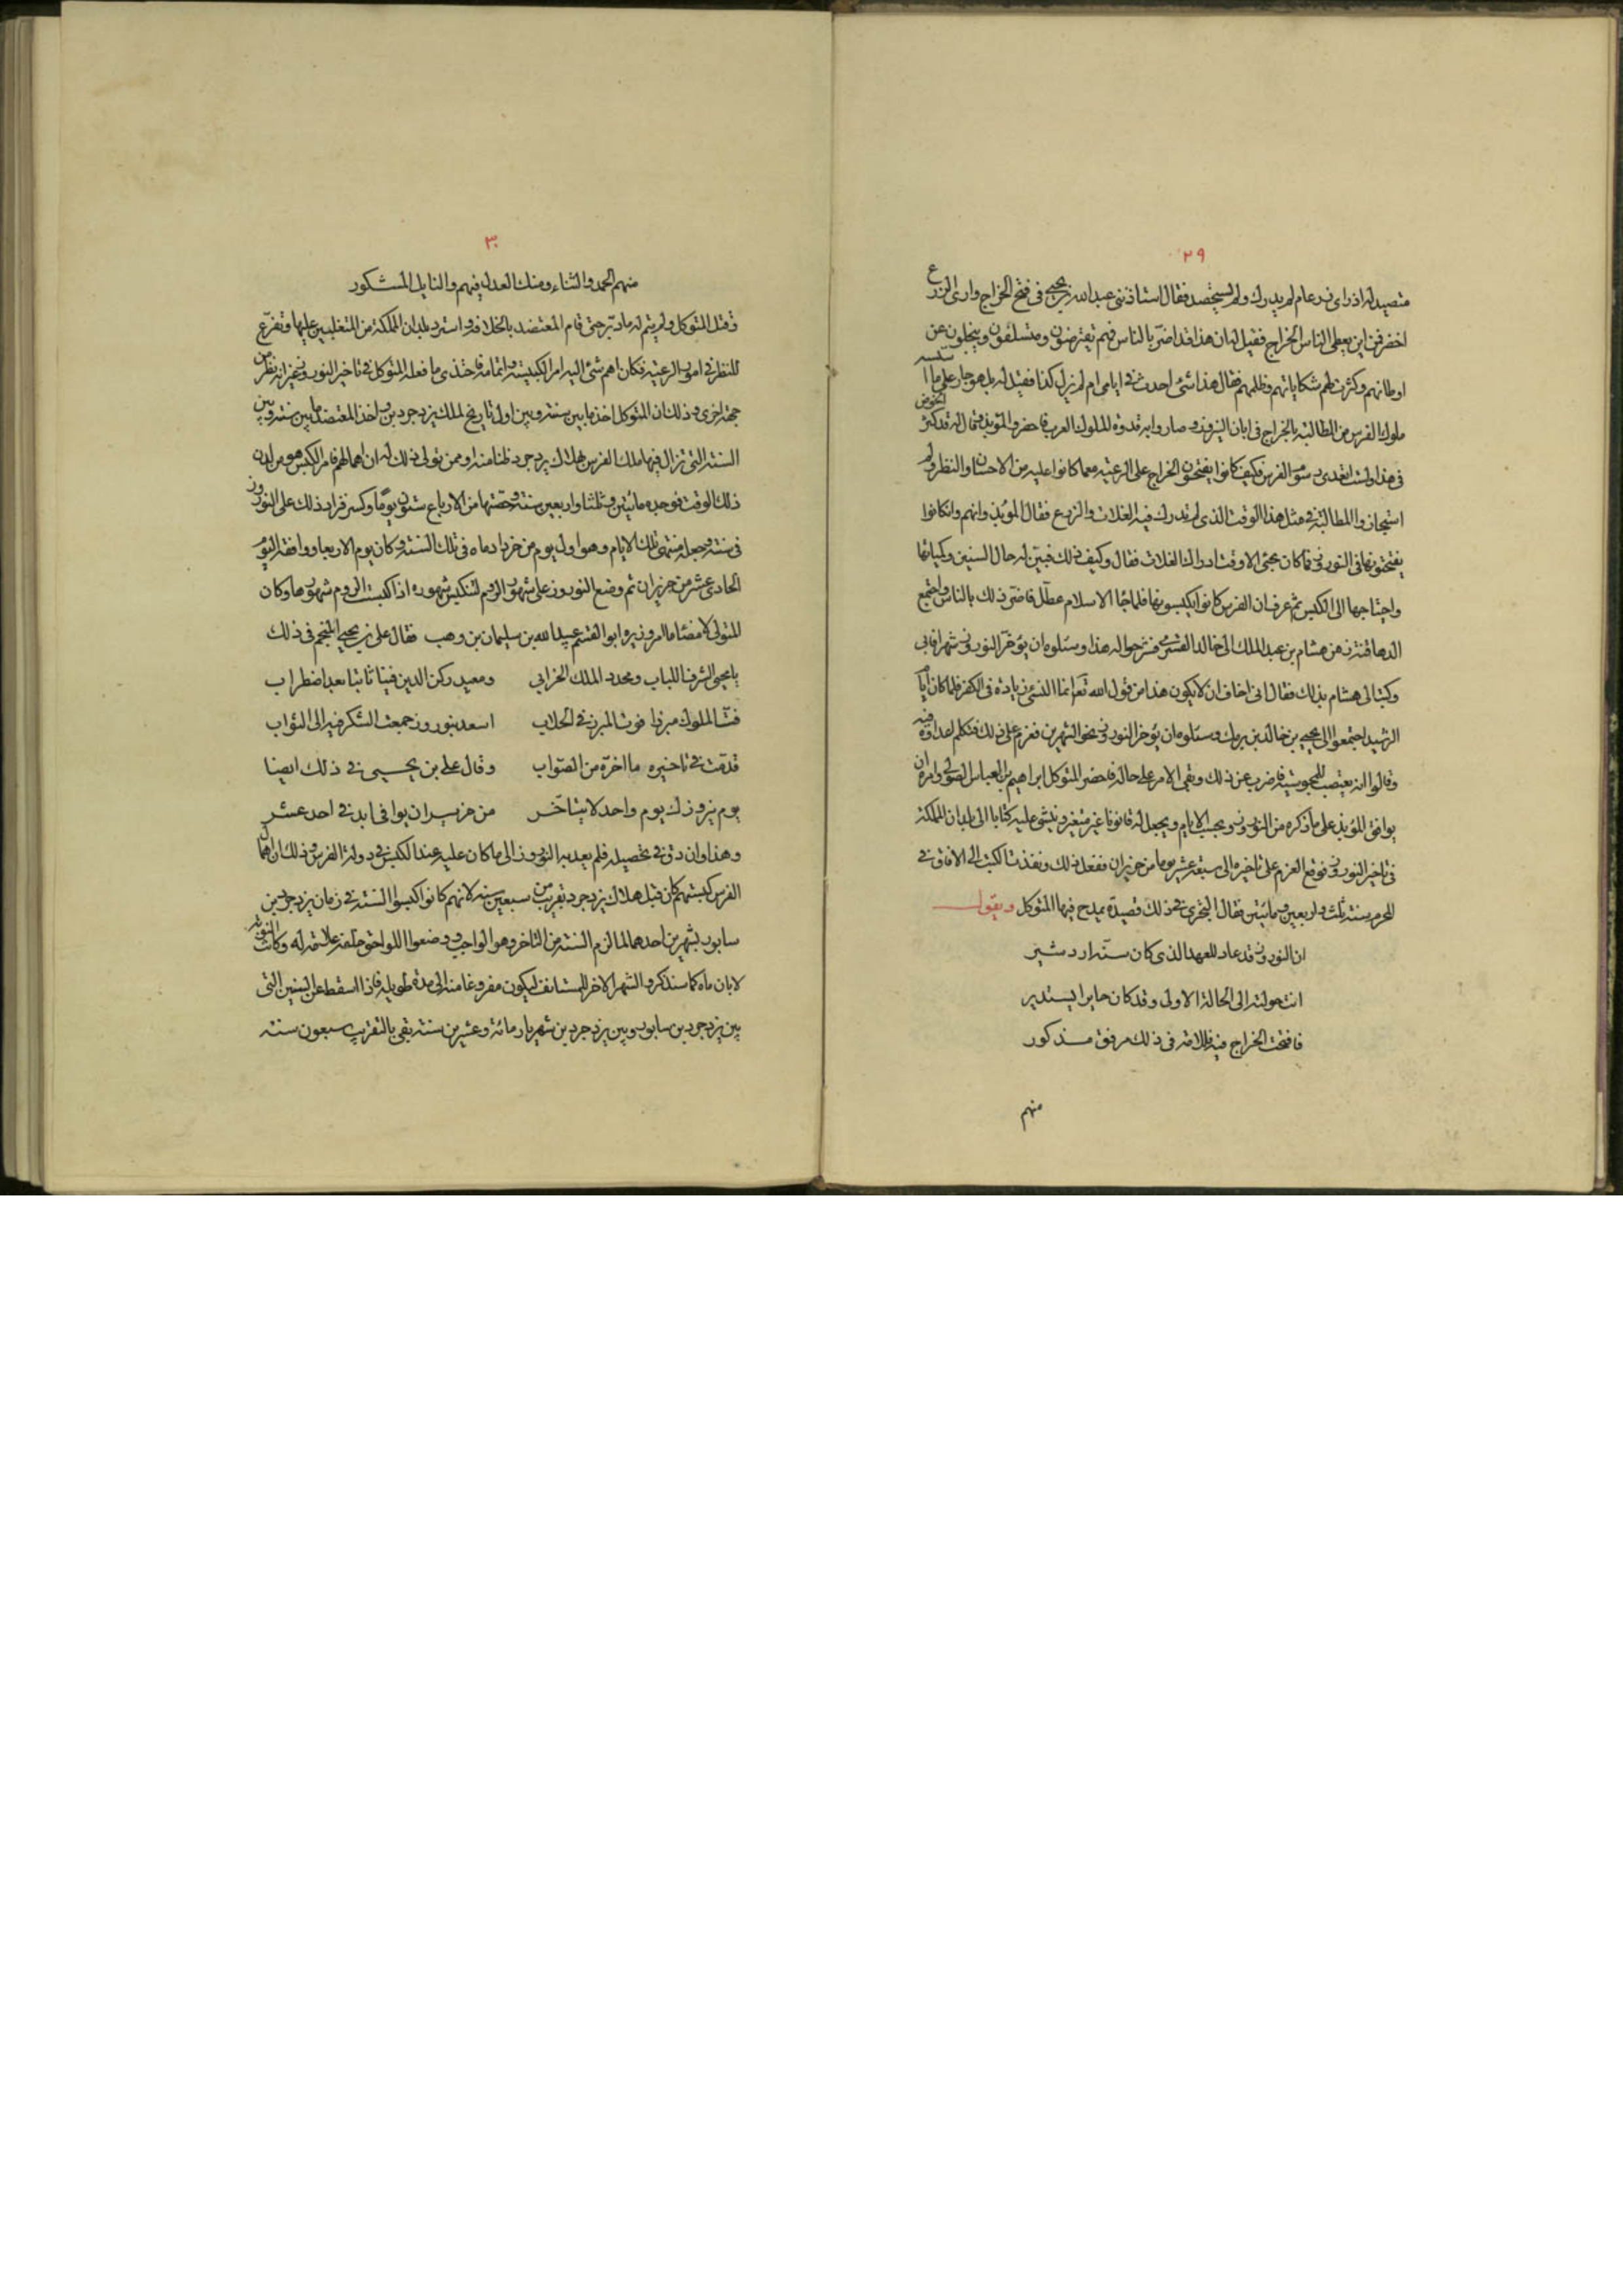 ٢٩
متصيد له اذ راى زرعا لم يدرك ولم يستحصد فقال استاذننى عبيد الله بن يحيى فى فتح الخراج وارى الزرع
اخضر فمن اين يعطى الناس الخراج فقيل له ان هذا قد اضرّ بالناس فهم يقترضون ويتسلفون وينجلون عن
اوطانهم وكثرت لهم شكاياتهم وظلمهم فقال هذا شئ احدث فى ايامى ام لم يزل كذا فقيل له بل هو جار على ما اسسه
ملوك الفرس من المطالبة بالخراج فى ابان النيروز وصاروا به قدوة للملوك العرب فاحضر الموبذ وقال له قد كثر الخوض
فى هذا ولست اتعدى رسوم الفرس فكيف كانوا يفتحون الخراج على الرعية مع ما كانوا عليه من الاحسان والنظر ولم
استجازوا المطالبة فى مثل هذا الوقت الذى لم يدرك فيه الغلات والزرع فقال الموبذ وانهم وان كانوا
يفتحونها فى النوروز فما كان يجئ الا وقت ادراك الغلات فقال وكيف ذلك فبين له حال السنين وكمياتها
واحتياجها الى الكبس ثم عرف ان الفرس كانوا يكبسونها فلما جاء الاسلام عطّل فاضر ذلك بالناس واجتمع
الدهاقنة زمن هشام بن عبد الملك الى خالد القسرى فشرحوا له هذا وسئلوه ان يؤخر النوروز شهرا فابى
وكتب الى هشام بذلك فقال انى اخاف ان لا يكون هذا من قول الله تعم انما النسئ زيادة فى الكفر فلما كان ايام
الرشيد اجتمعوا الى يحيى بن خالد بن برمك وسئلوه ان يؤخر النوروز نحو الشهرين فعزم على ذلك فتكلم اعداؤه فيه
وقالوا انه يتعصب للمجوسية فاضرب عن ذلك وبقى الامر على حاله فاحضر المتوكل ابراهيم بن العباس الصولى وامره ان
يوافق الموبذ على ما ذكره من النوروز ويحسب الايام ويجعل له قانونا غير متغير وينشئ عليه كتابا الى بلدان المملكة
فى تاخير النوروز فوقع العزم على تاخيره الى سبعة عشر يوما من حزيران ففعل ذلك ونفذت الكتب الى الافاق فى
المحرم سنة ثلث واربعين ومائتين فقال البحترى فى ذلك قصيدة يمدح فيها المتوكل ويقول
ان النوروز قد عاد للعهد الذى كان سنه اردشير
انت حولته الى الحالة الاولى وقد كان حايرا يستدير
فافتتحت الخراج فيه فللامة فى ذلك مرفق مذكور
منهم
٣٠
منهم الحمد والثناء ومنك العدل فيهم والنايل المشكور
وقتل المتوكل ولم يتم له ما دبّر حتى قام المعتضد بالخلافة واسترد بلدان المملكة من المتغلبين عليها وتفرّغ
للنظر فى امور الرعية فكان اهم شئ اليه امر الكبيسة واتمامه فاحتذى ما فعله المتوكل فى تاخير النوروز غير انه نظر من
جهة اخرى وذلك ان المتوكل اخذ ما بين سنته وبين اول تاريخ لملك يزدجرد بن واخذ المعتضد ما بين سنته وبين
السنة التى زال فيها ملك الفرس بهلاك يزدجرد ظنا منه او ممن تولى ذلك له ان اهمالهم فامر الكبس هو من لدن
ذلك الوقت فوجده مائتين وثلثا واربعين سنة وحصتها من الارباع ستون يوما وكسر فزاد ذلك على النوروز
فى سنته وجعله منتهى تلك الايام وهو اول يوم من خرداد ماه فى تلك السنة وكان يوم الاربعا ووافقه اليوم
الحادى عشر من حزيران ثم وضع النوروز على شهور الروم لتنكبس شهوره اذا كبست الروم شهورها وكان
المتولى لامضاء ما امر وزيره ابو القسم عبيد الله بن سليمان بن وهب فقال على بن يحيى المنجم فى ذلك
يا محيى الشرف اللباب ومجدد الملك الخراب ومعيد ركن الدين فينا ثابتا بعد اضطراب
فتّ الملوك مبرزا فوت المبرز فى الحلاب اسعد بنوروز جمعت الشكر فيه الى الثواب
قدّمت فى تاخيره ما اخرّه من الصواب وقال على بن يحيى فى ذلك ايضا
يوم نيروزك يوم واحد لا يتاخر من حزيران يوافى ابدا فى احد عشر
وهذا وان دق فى تحصيله فلم يعد به النوروز الى ما كان عليه عند الكبس فى دولة الفرس وذلك ان اهمال
الفرس كبستهم كان قبل هلاك يزدجرد بقريب من سبعين سنة لانهم كانوا كبسوا السنة فى زمان يزدجرد بن
سابور بشهرين احدهما لما لزم السنة من التاخر وهو الواجب ووضعوا اللواحق خلفه علامة له وكانت النوبة
لابان ماه كما سنذكر والشهر الاخر للمستانف ليكون مفروغا منه الى مدة طويلة فاذا اسقط عن السنين التى
بين يزدجرد بن سابور وبين يزدجرد بن شهريار مائة وعشرين سنة بقى بالتقريب سبعون سنة